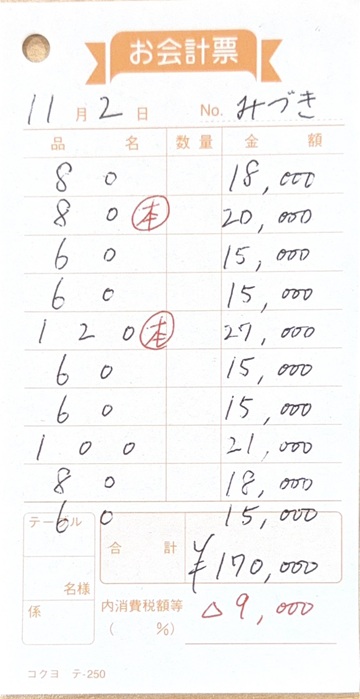 お会計票
11月2日 No. みづき
品名 数量 金額
80 18,000
80 本 20,000
60 15,000
60 15,000
120 本 27,000
60 15,000
60 15,000
100 21,000
80 18,000
60 15,000
テーブル
合計 ¥170,000
名様
係
内消費税額等 △9,000
( %)
コクヨ テ-250